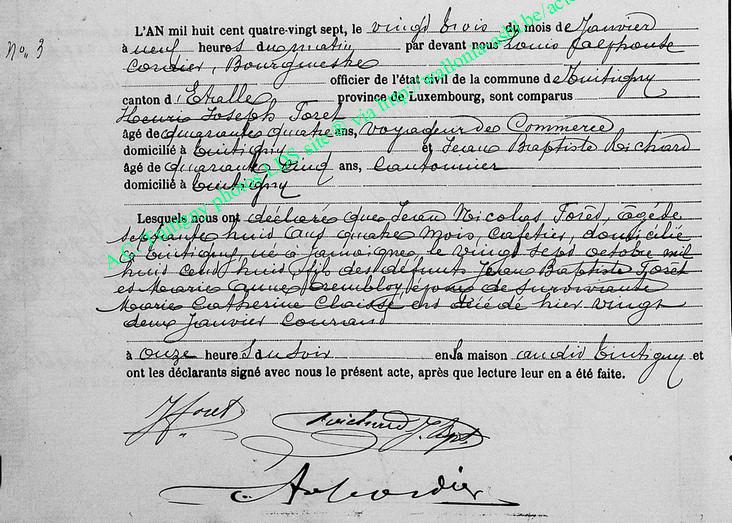 No. 3
L'AN mil huit cent quatre-vingt sept, le vingt trois du mois de Janvier
à neuf heures du matin par devant nous Louis Jalphonse
Cordier, Bourgmestre
officier de l'état civil de la commune de Tintigny
canton d'Etalle province de Luxembourg, sont comparus
Henri Joseph Foret
âgé de quarante quatre ans, voyageur de Commerce
domicilié à Tintigny et Jean Baptiste Richard
âgé de quarante cinq ans, Cantonnier
domicilié à Tintigny
Lesquels nous ont déclaré que Jean Nicolas Foret, âgé de
septante huit ans quatre mois, cafetier, domicilié
à Tintigny né à Jamoigne, le vingt sept octobre mil
huit cent huit fils des défunts Jean Baptiste Foret
et Marie Anne Trembloy, époux de survivante
Marie Catherine est décédé hier vingt
deux Janvier courant
à onze heures du soir en sa maison audit Tintigny et
ont les déclarants signé avec nous le présent acte, après que lecture leur en a été faite.
Jforet
Richard J. Bpte
Cordier